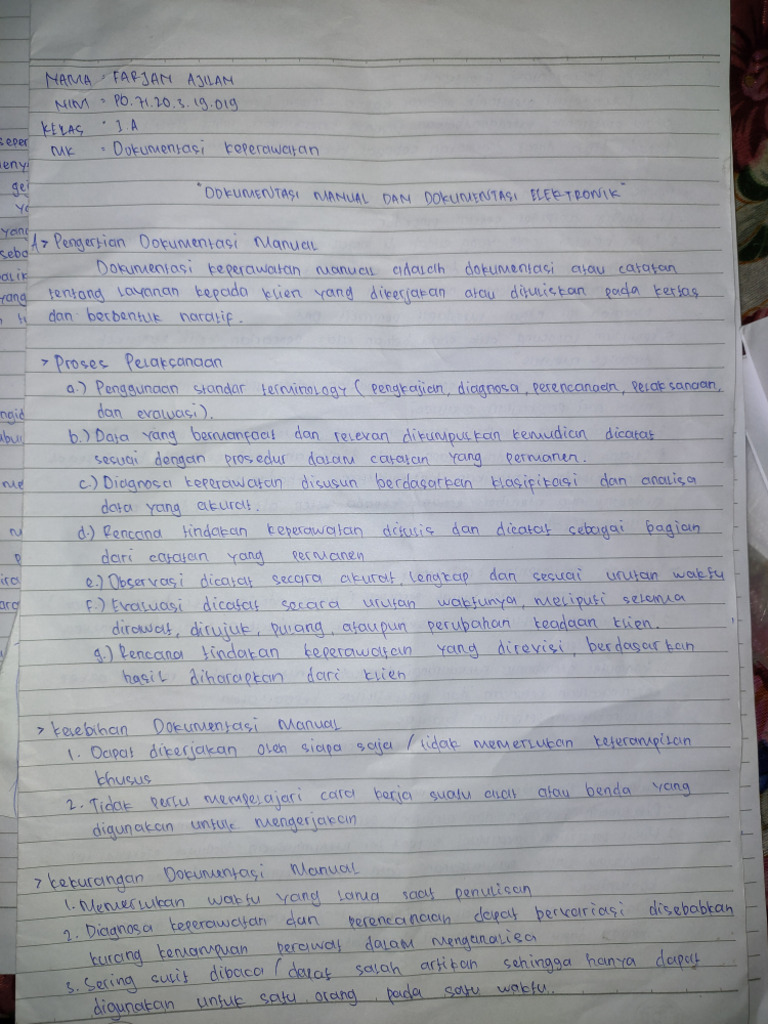 NAMA : FARJAN AJILAN
NIM : PO.71.20.3.19.019
KELAS : I.A
MK : Dokumentasi Keperawatan
"DOKUMENTASI MANUAL DAN DOKUMENTASI ELEKTRONIK"
A> Pengertian Dokumentasi Manual
Dokumentasi keperawatan manual adalah dokumentasi atau catatan
tentang layanan kepada klien yang dikerjakan atau dituliskan pada kertas
dan berbentuk naratif.
> Proses Pelaksanaan
a.) Penggunaan standar terminology (pengkajian, diagnosa, perencanaan, pelaksanaan,
dan evaluasi).
b.) Data yang bermanfaat dan relevan dikumpulkan kemudian dicatat
sesuai dengan prosedur dalam catatan yang permanen.
c.) Diagnosa keperawatan disusun berdasarkan klasifikasi dan analisa
data yang akurat.
d.) Rencana tindakan keperawatan ditulis dan dicatat sebagai bagian
dari catatan yang permanen
e.) Observasi dicatat secara akurat, lengkap dan sesuai urutan waktu
f.) Evaluasi dicatat secara urutan waktunya, meliputi selama
dirawat, dirujuk, pulang, ataupun perubahan keadaan klien.
g.) Rencana tindakan keperawatan yang direvisi, berdasarkan
hasil diharapkan dari klien
> Kelebihan Dokumentasi Manual
1. Dapat dikerjakan oleh siapa saja / tidak memerlukan keterampilan
khusus
2. Tidak perlu mempelajari cara kerja suatu alat atau benda yang
digunakan untuk mengerjakan
> Kekurangan Dokumentasi Manual
1. Memerlukan waktu yang lama saat penulisan
2. Diagnosa keperawatan dan perencanaan dapat bervariasi disebabkan
kurang kemampuan perawat dalam menganalisa
3. Sering sulit dibaca / dalat salah artikan sehingga hanya dapat
digunakan untuk satu orang pada satu waktu.